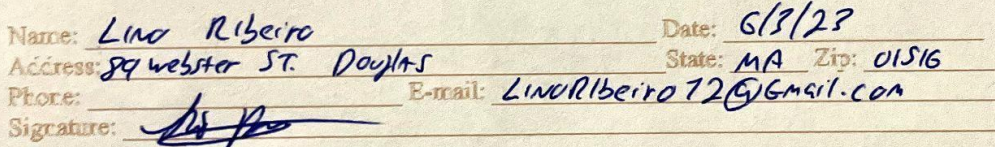 Name: Lino Ribeiro Date: 6/3/23
Address: 89 webster ST. Douglas State: MA Zip: 01516
Phone: E-mail: LinoRibeiro72@Gmail.com
Signature: